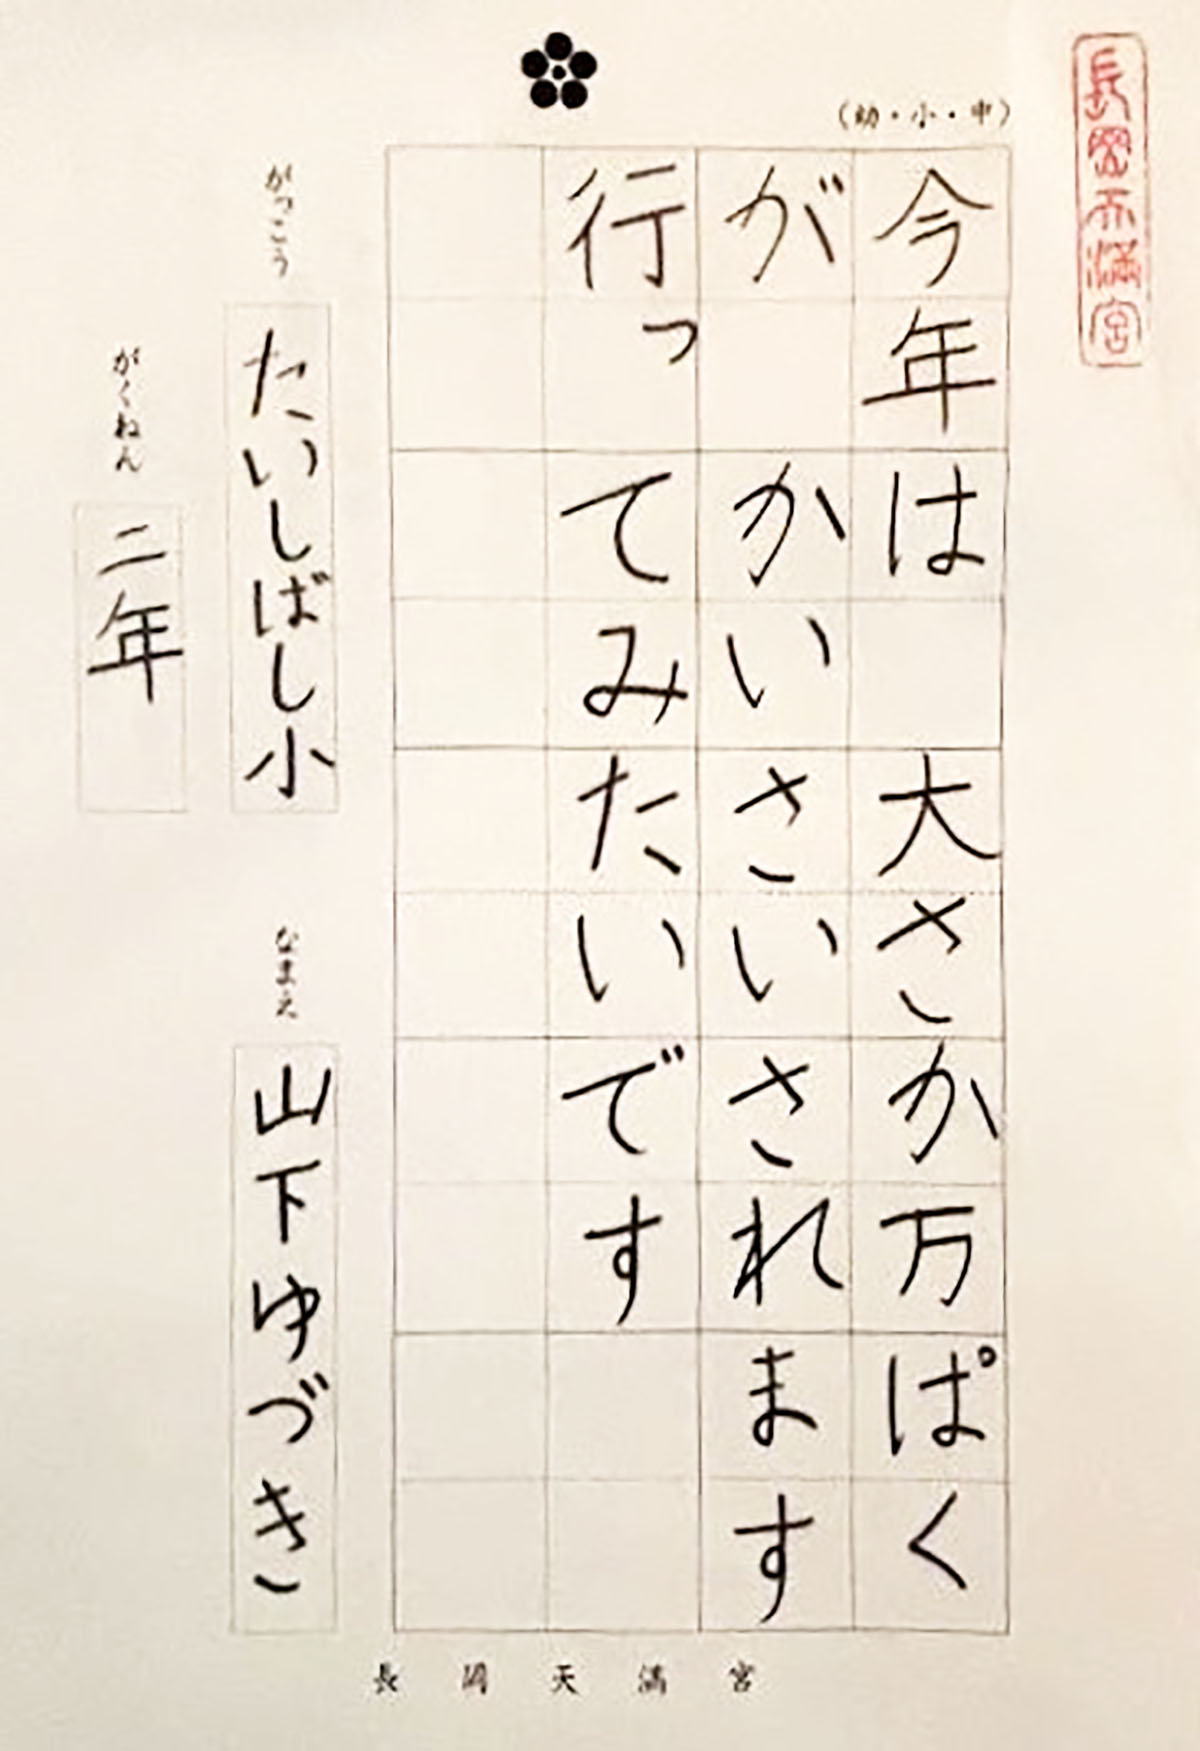 長岡天満宮
(幼・小・中)
今年は 大さか万ぱく
が かいさいされます
行ってみたいです
がっこう
たいしばし小
なまえ
山下ゆづき
がくねん
二年
長岡天満宮